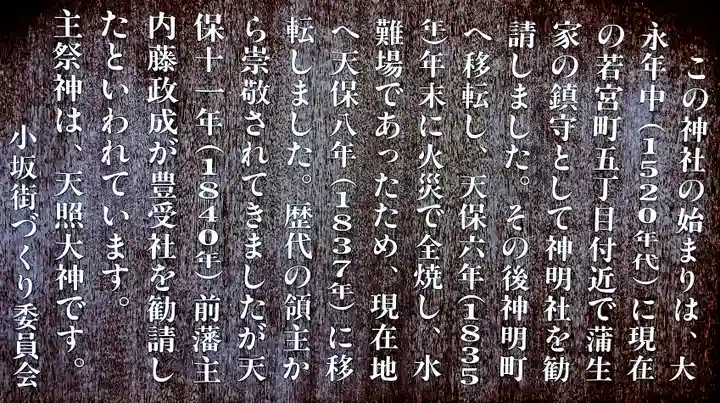 この神社の始まりは、大
永年中（1520年代）に現在
の若宮町五丁目付近で蒲生
家の鎮守として神明社を勧
請しました。その後神明町
へ移転し、天保六年（1835
年）年末に火災で全焼し、水
難場であったため、現在地
へ天保八年（1837年）に移
転しました。歴代の領主か
ら崇敬されてきましたが天
保十一年（1840年）前藩主
内藤政成が豊受社を勧請し
たといわれています。
主祭神は、天照大神です。
小坂街づくり委員会